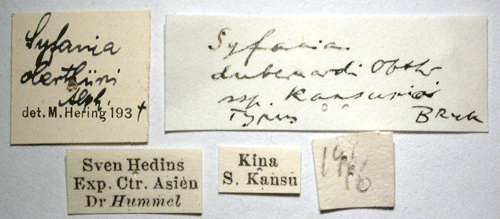 Syfania
det. M. Hering 193
Syfania
dubernardi Obthr
ssp. Kansuensis
Typus Bryk
Sven Hedins
Exp. Ctr. Asien
Dr Hummel
Kina
S. Kansu